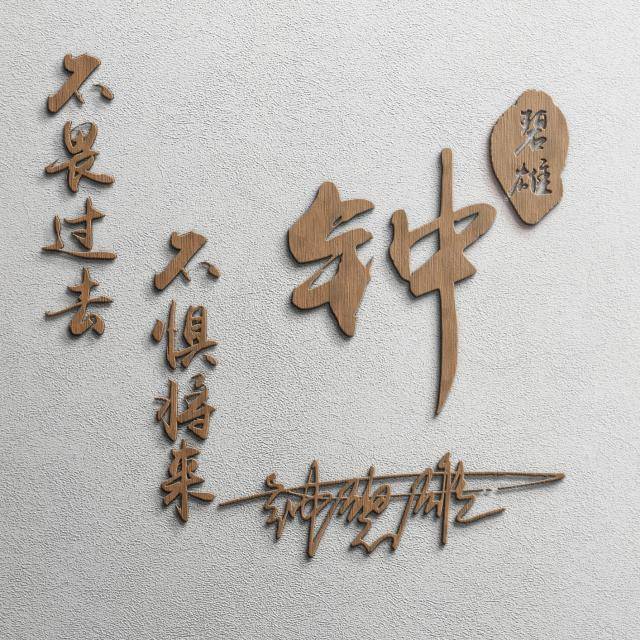 不畏过去
不惧将来
钟
碧雄
钟碧雄